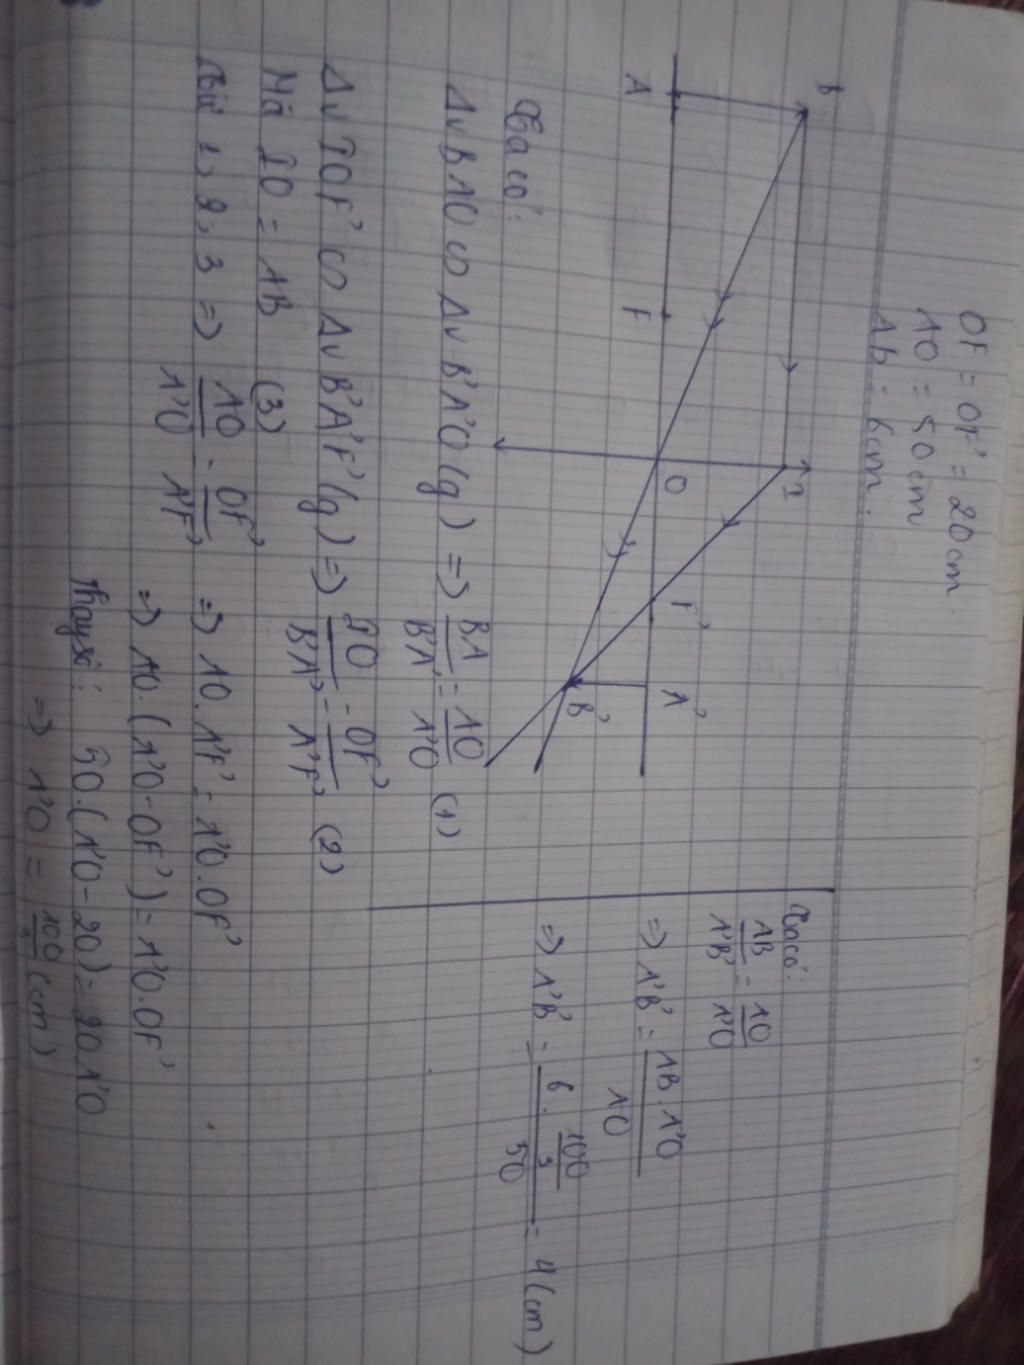 OF = OF' = 20cm.
AO = 50 cm
AB = 6cm.
B
I
A
F
O
F'
A'
B'
Ta có:
ΔvBAO ∽ ΔvB'A'O (g) => BA/B'A' = AO/A'O (1)
ΔvIOF' ∽ ΔvB'A'F' (g) => IO/B'A' = OF'/A'F' (2)
Mà IO = AB (3)
Từ 1, 2, 3 => AO/A'O = OF'/A'F' => AO.A'F' = A'O.OF'
=> AO.(A'O-OF') = A'O.OF'
Thay số: 50.(A'O-20) = 20.A'O
=> A'O = 100/3 (cm)
Ta có:
AB/A'B' = AO/A'O
=> A'B' = AB.A'O/AO
=> A'B' = 6 . 100/3 / 50 = 4 (cm)